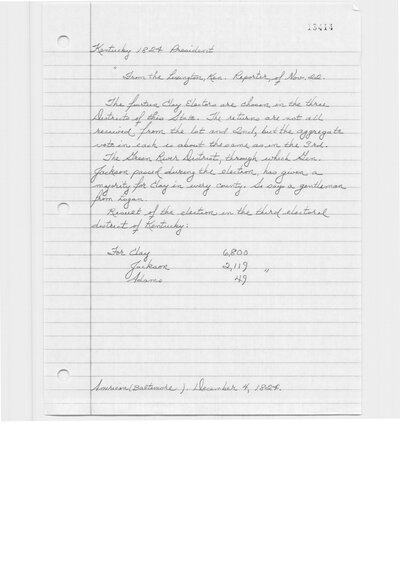 13414
Kentucky 1824 President
" From the Lexington, Ken. Reporter, of Nov. 22.
The fourteen Clay Electors are chosen in the three
Districts of this State. The returns are not all
received, from the 1st and 2nd, but the aggregate
vote in each is about the same as in the 3rd.
The Green River District, through which Gen.
Jackson passed during the election, has given a
majority for Clay in every county. So says a gentleman
from Logan.
Result of the election in the third electoral
district of Kentucky:
For Clay 6,800
Jackson 2,119 "
Adams 49
American (Baltimore). December 4, 1824.